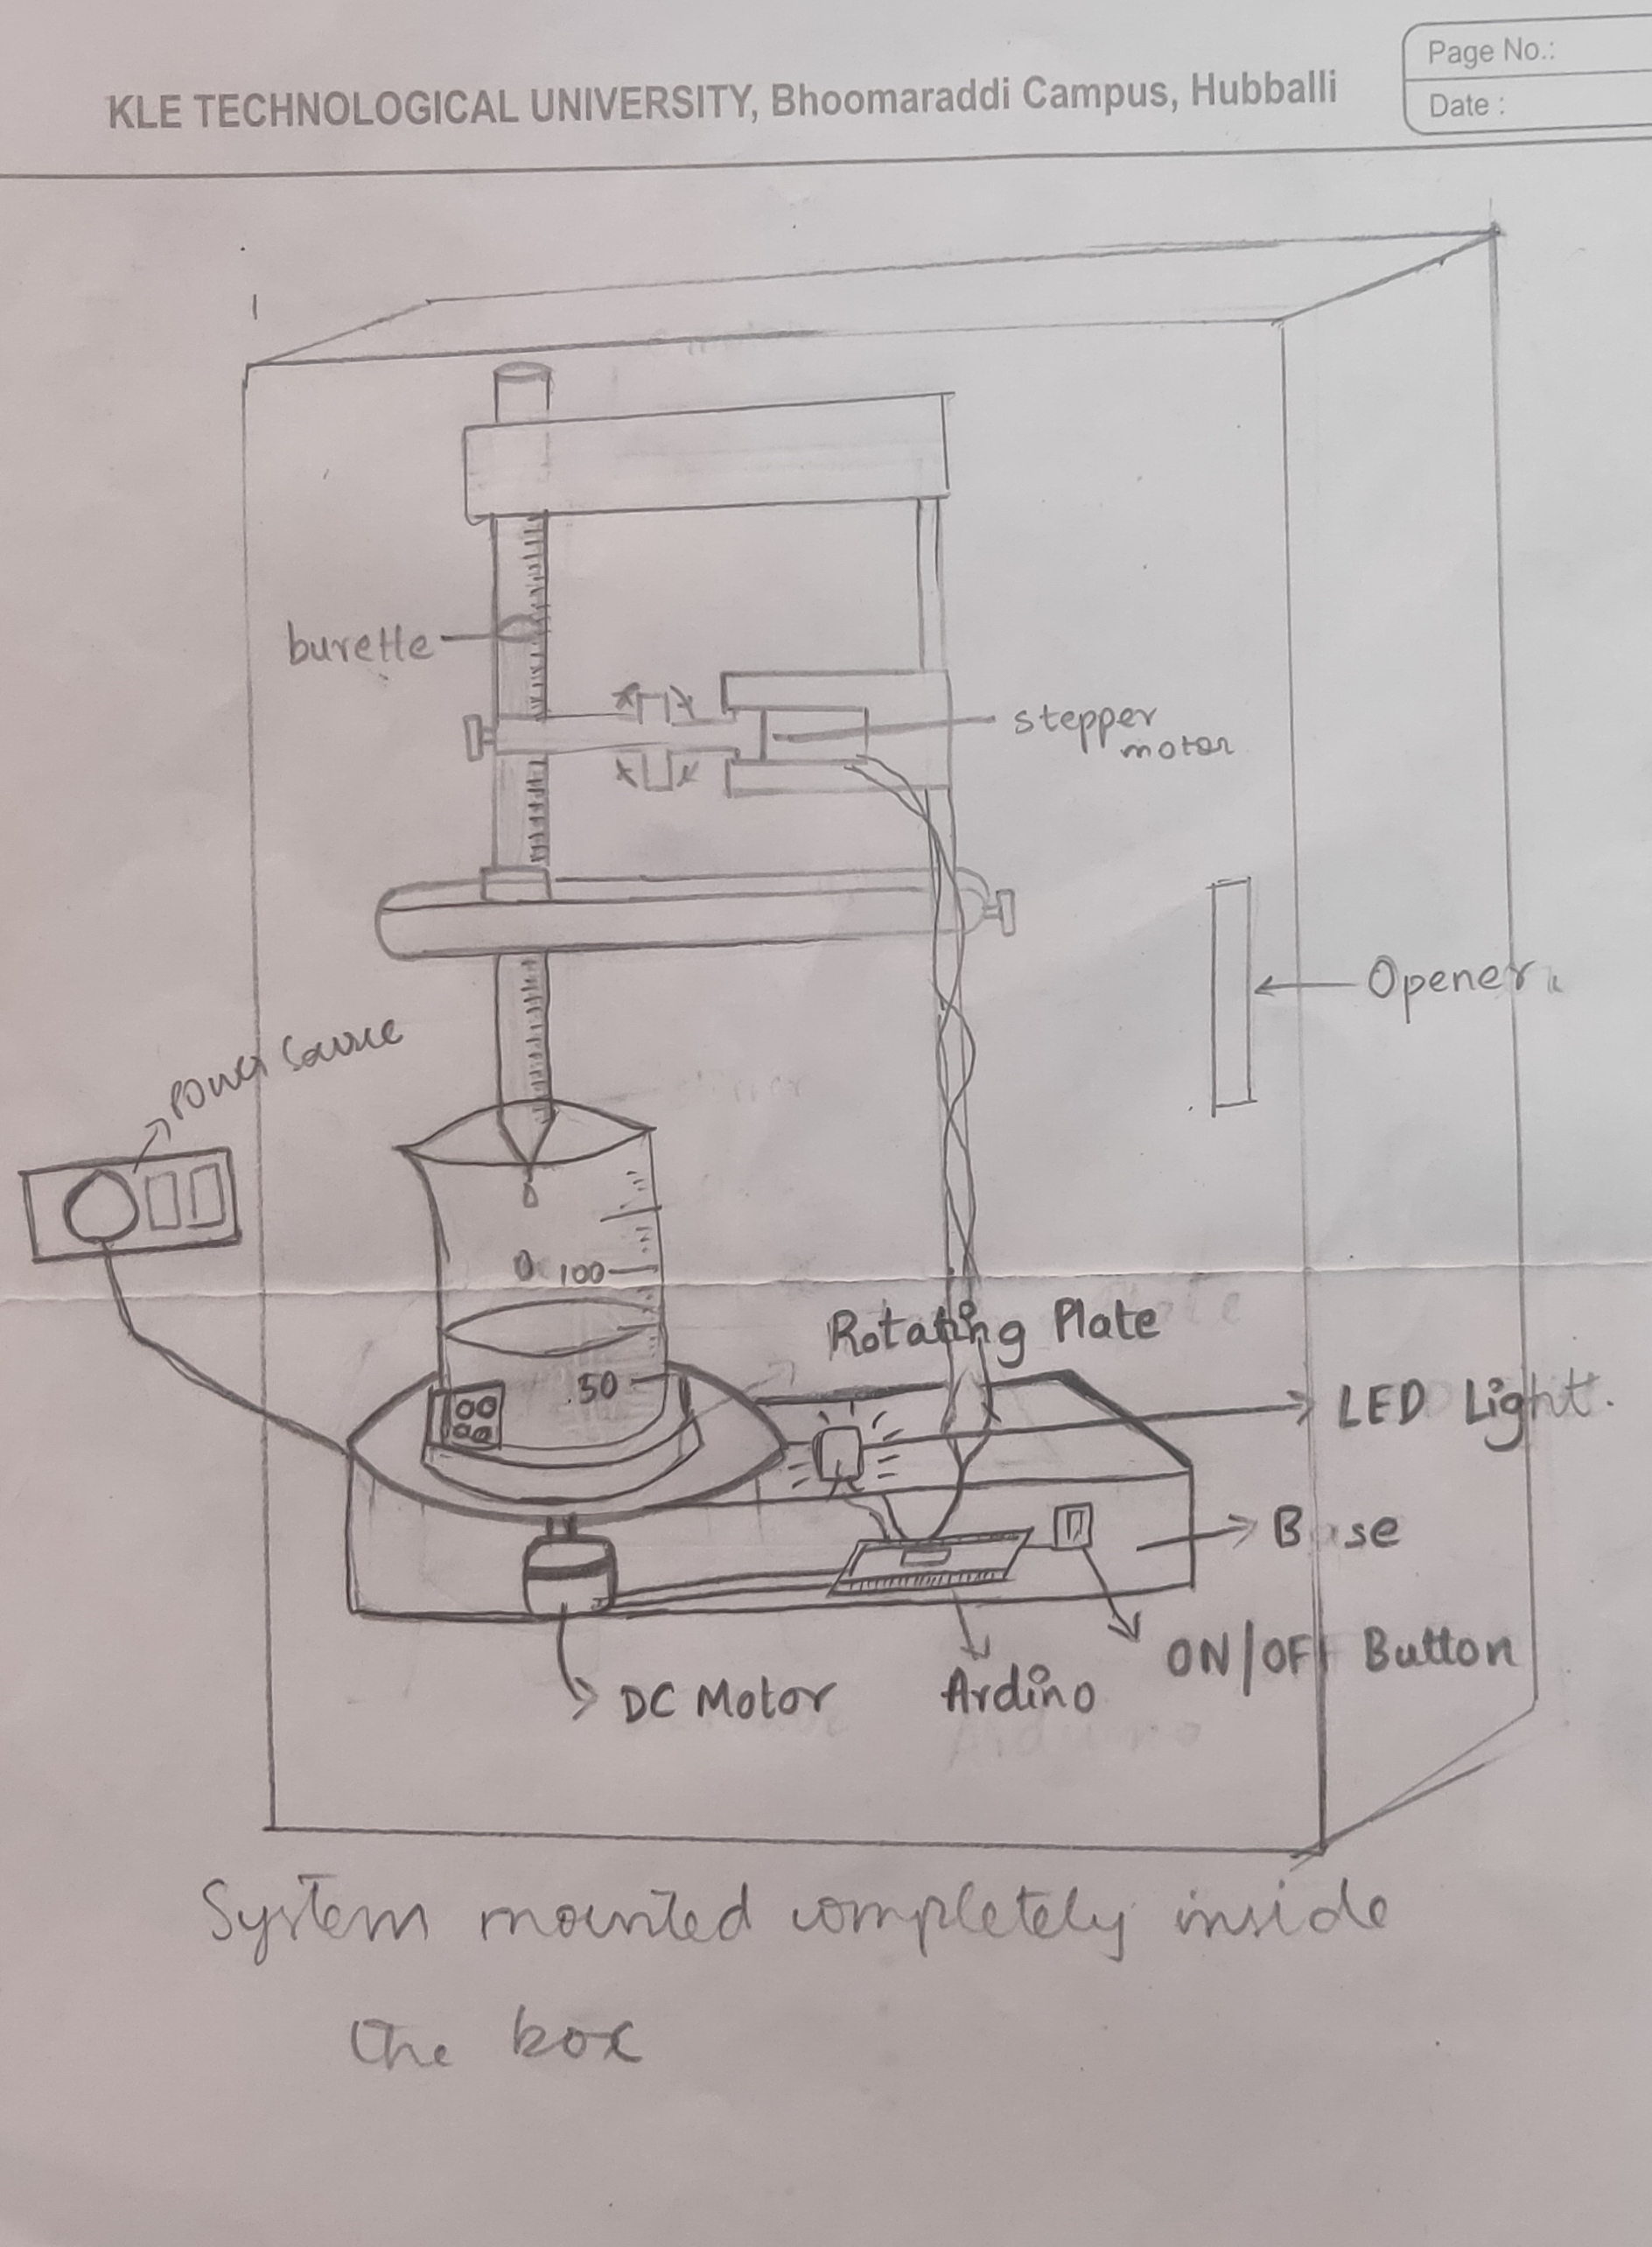 Page No.:
KLE TECHNOLOGICAL UNIVERSITY, Bhoomaraddi Campus, Hubballi
Date :
burette
stepper
motor
Opener
Power Source
100
50
Rotating Plate
LED Light.
Base
ON/OFF Button
DC Motor
Ardino
System mounted completely inside
the box